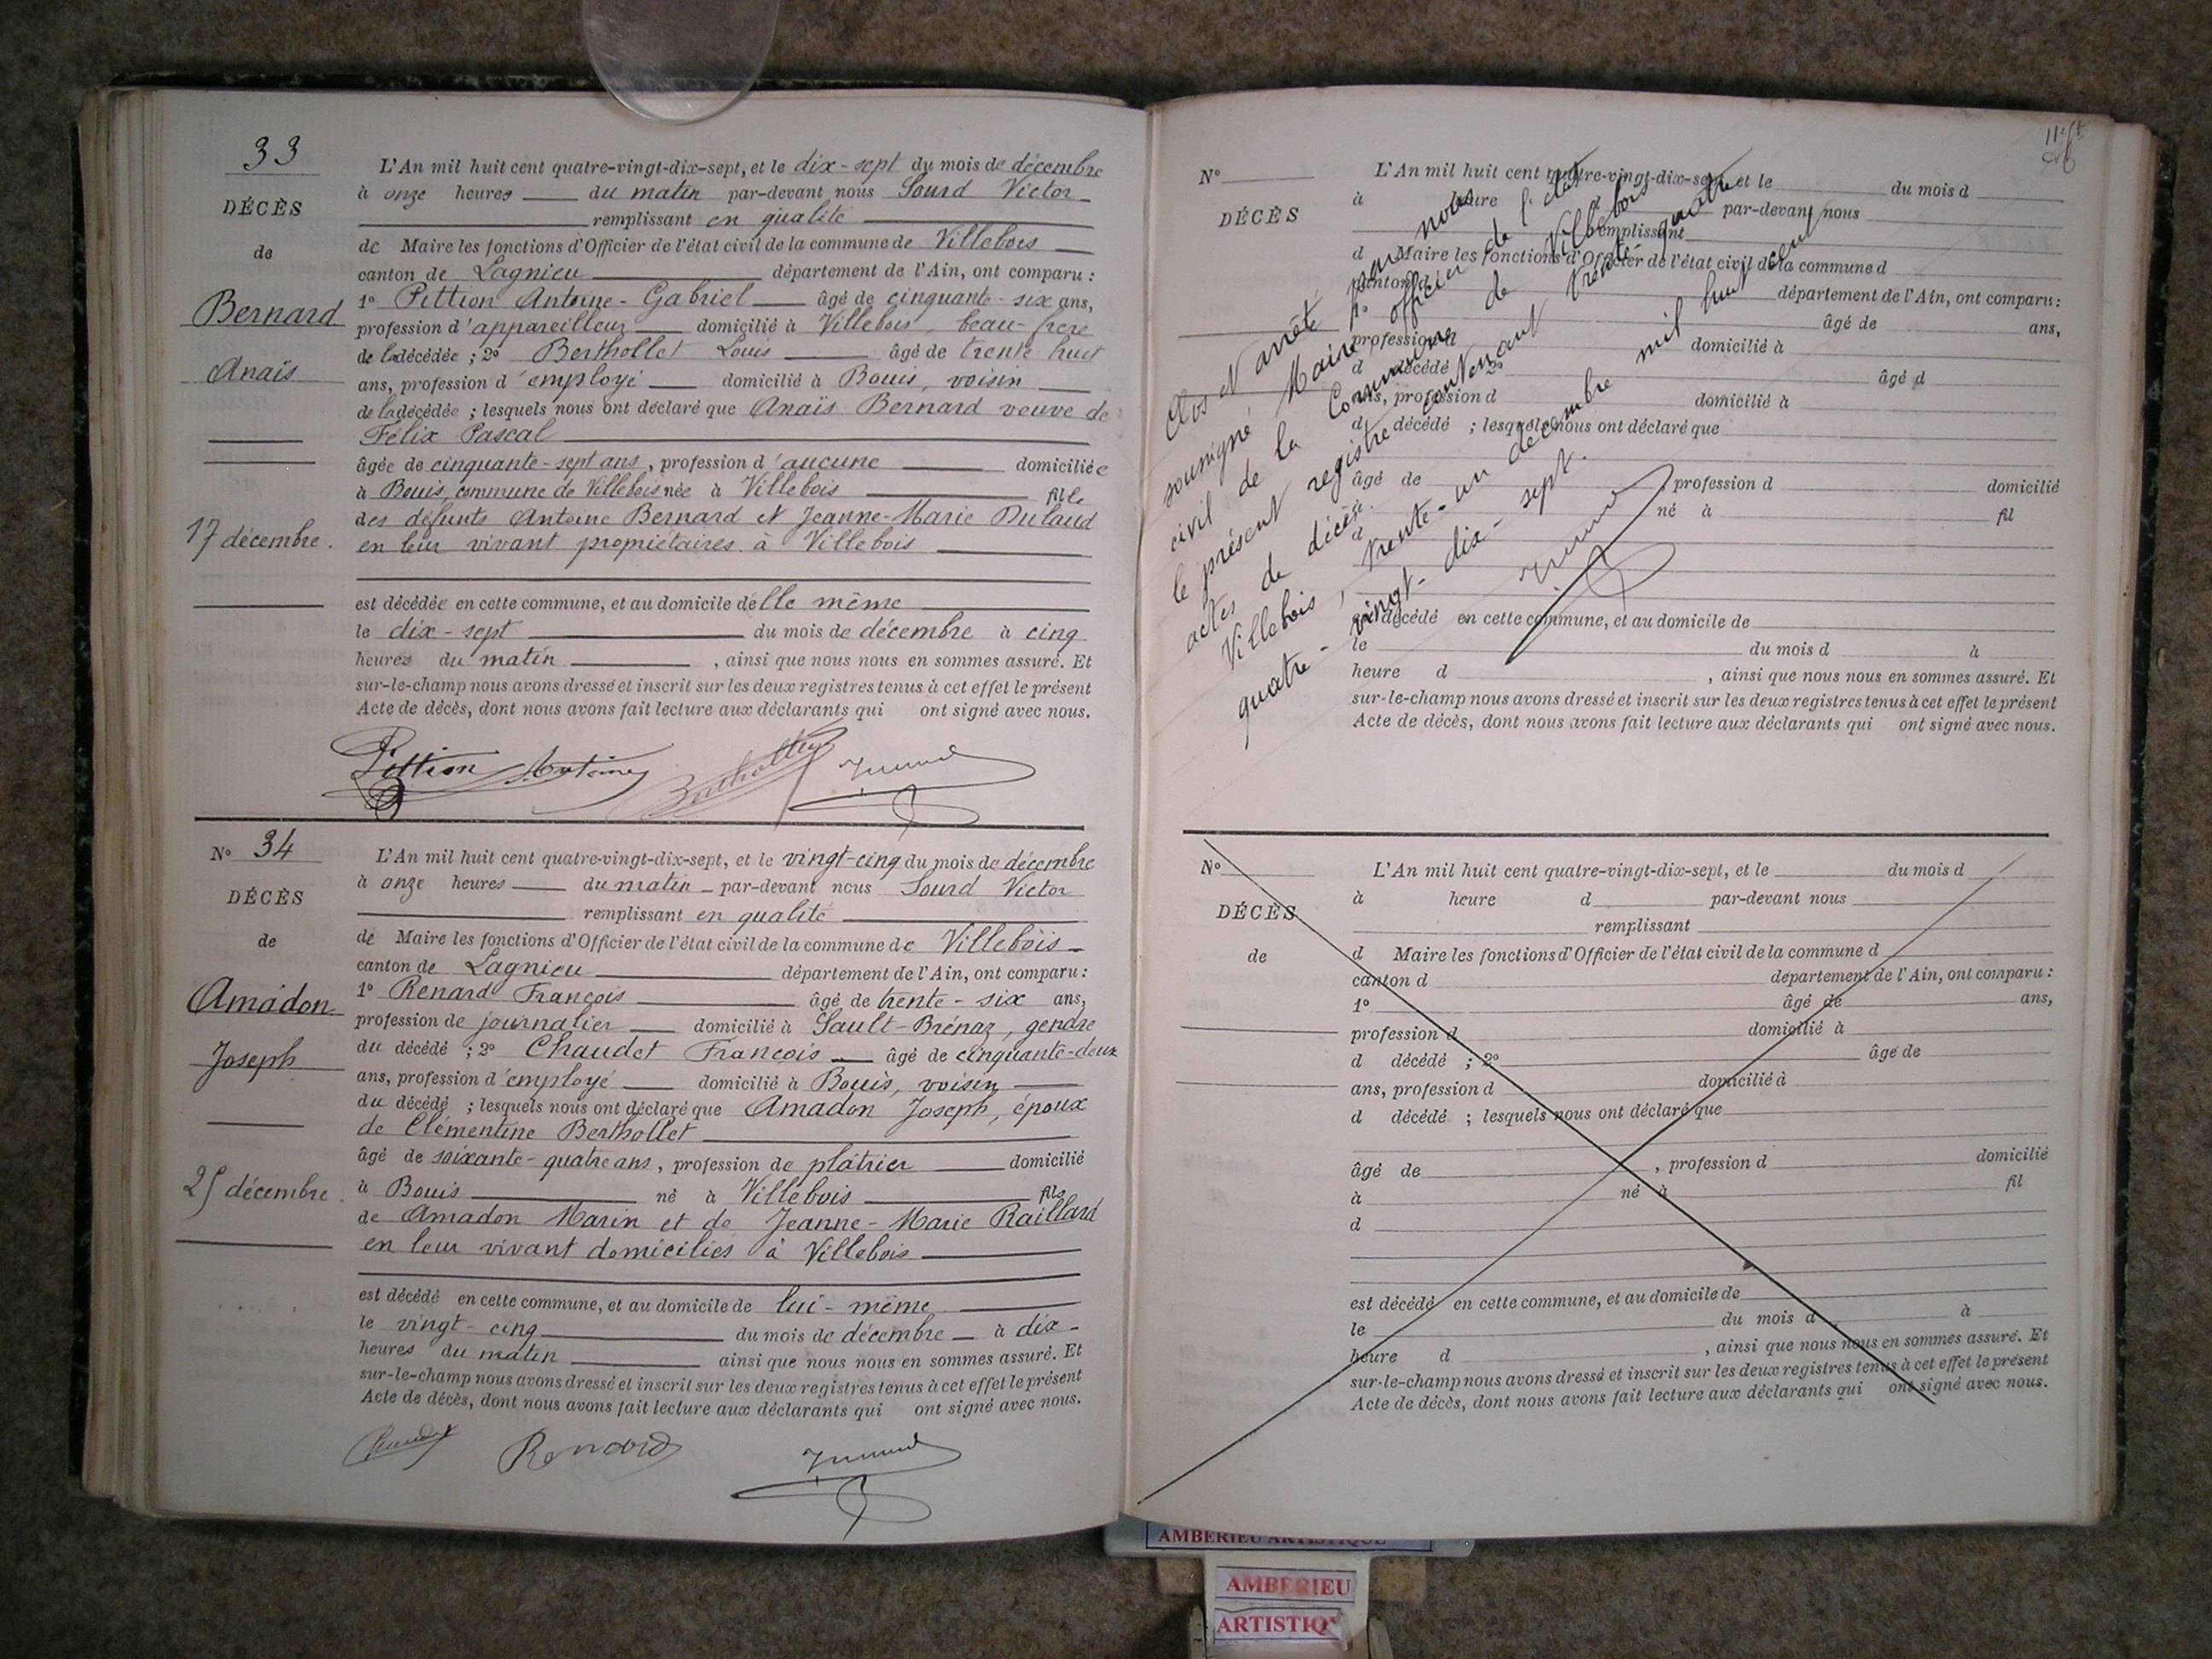 33
DÉCÈS
de
Bernard
Anaïs
17 décembre.
L'An mil huit cent quatre-vingt-dix-sept, et le dix-sept du mois de décembre
à onze heures du matin par-devant nous Sourd Victor
remplissant en qualité
de Maire les fonctions d'Officier de l'état civil de la commune de Villebois
canton de Lagnieu département de l'Ain, ont comparu :
1° Pittion Antoine-Gabriel âgé de cinquante-six ans,
profession d'appareilleur domicilié à Villebois, beau-frère
de la décédée ; 2° Berthollet Louis âgé de trente huit
ans, profession d'employé domicilié à Bouis, voisin
de la décédée ; lesquels nous ont déclaré que Anaïs Bernard veuve de
Félix Pascal
âgée de cinquante-sept ans, profession d'aucune domiciliée
à Bouis, commune de Villebois née à Villebois fille
des défunts Antoine Bernard et Jeanne-Marie Dulaud
en leur vivant propriétaires à Villebois
est décédée en cette commune, et au domicile d'elle même
le dix-sept du mois de décembre à cinq
heures du matin, ainsi que nous nous en sommes assuré. Et
sur-le-champ nous avons dressé et inscrit sur les deux registres tenus à cet effet le présent
Acte de décès, dont nous avons fait lecture aux déclarants qui ont signé avec nous.
Pittion Antoine Berthollet
N° 34
DÉCÈS
de
Amadon
Joseph
25 décembre.
L'An mil huit cent quatre-vingt-dix-sept, et le vingt-cinq du mois de décembre
à onze heures du matin par-devant nous Sourd Victor
remplissant en qualité
de Maire les fonctions d'Officier de l'état civil de la commune de Villebois
canton de Lagnieu département de l'Ain, ont comparu :
1° Renard François âgé de trente-six ans,
profession de journalier domicilié à Sault-Brénaz, gendre
du décédé ; 2° Chaudet François âgé de cinquante-deux
ans, profession d'employé domicilié à Bouis, voisin
du décédé ; lesquels nous ont déclaré que Amadon Joseph, époux
de Clémentine Berthollet
âgé de soixante-quatre ans, profession de plâtrier domicilié
à Bouis né à Villebois fils
de Amadon Marin et de Jeanne-Marie Raillard
en leur vivant domiciliés à Villebois
est décédé en cette commune, et au domicile de lui-même
le vingt-cinq du mois de décembre à dix
heures du matin ainsi que nous nous en sommes assuré. Et
sur-le-champ nous avons dressé et inscrit sur les deux registres tenus à cet effet le présent
Acte de décès, dont nous avons fait lecture aux déclarants qui ont signé avec nous.
Chaudet Renard
N°
DÉCÈS
L'An mil huit cent quatre-vingt-dix-sept, et le du mois d
à heure d par-devant nous
remplissant
d Maire les fonctions d'Officier de l'état civil de la commune d
canton d département de l'Ain, ont comparu :
1° âgé de ans,
profession d domicilié à
d décédé 2° âgé d
ans, profession d domicilié à
d décédé ; lesquels nous ont déclaré que
âgé de , profession d domicilié
né à fil
d
est décédé en cette commune, et au domicile de
le du mois d à
heure d , ainsi que nous nous en sommes assuré. Et
sur-le-champ nous avons dressé et inscrit sur les deux registres tenus à cet effet le présent
Acte de décès, dont nous avons fait lecture aux déclarants qui ont signé avec nous.
Clos et arrêté par nous
soussigné Maire, officier de l'état
civil de la Commune de Villebois
le présent registre contenant trente-quatre
actes de décès.
Villebois, trente-un décembre mil huit cent
quatre-vingt-dix-sept.
N°
DÉCÈS
de
L'An mil huit cent quatre-vingt-dix-sept, et le du mois d
à heure d par-devant nous
remplissant
d Maire les fonctions d'Officier de l'état civil de la commune d
canton d département de l'Ain, ont comparu :
1° âgé de ans,
profession d domicilié à
d décédé ; 2° âgé de
ans, profession d domicilié à
d décédé ; lesquels nous ont déclaré que
âgé de , profession d domicilié
à né à fil
d
est décédé en cette commune, et au domicile de
le du mois d à
heure d , ainsi que nous nous en sommes assuré. Et
sur-le-champ nous avons dressé et inscrit sur les deux registres tenus à cet effet le présent
Acte de décès, dont nous avons fait lecture aux déclarants qui ont signé avec nous.
AMBERIEU ARTISTIQUE
AMBERIEU
ARTISTIQ